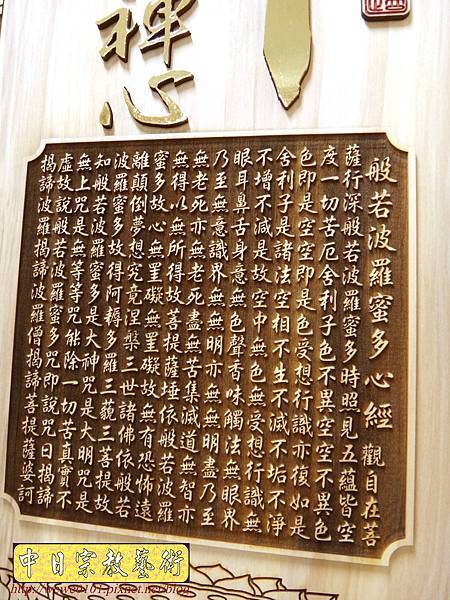 禪心
般若波羅蜜多心經 觀自在菩
薩行深般若波羅蜜多時照見五蘊皆空
度一切苦厄舍利子色不異空空不異色
色即是空空即是色受想行識亦復如是
舍利子是諸法空相不生不滅不垢不淨
不增不減是故空中無色無受想行識無
眼耳鼻舌身意無色聲香味觸法無眼界
乃至無意識界無無明亦無無明盡乃至
無老死亦無老死盡無苦集滅道無智亦
無得以無所得故菩提薩埵依般若波羅
蜜多故心無罣礙無罣礙故無有恐怖遠
離顛倒夢想究竟涅槃三世諸佛依般若
波羅蜜多故得阿耨多羅三藐三菩提故
知般若波羅蜜多是大神咒是大明咒是
無上咒是無等等咒能除一切苦真實不
虛故說般若波羅蜜多咒即說咒曰揭諦
揭諦波羅揭諦波羅僧揭諦菩提薩婆訶
中日宗教藝術